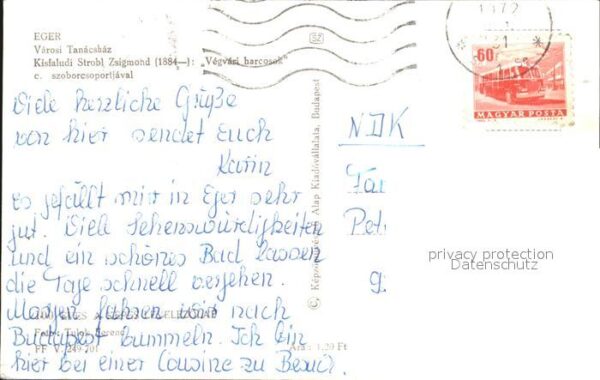 EGER
Városi Tanácsház
Kisfaludi Strobl Zsigmond (1884—): „Végvári harcosok"
c. szoborcsoportjával
Viele herzliche Grüße
von hier sendet Euch
Karin
Es gefällt mir in Eger sehr
gut. Viele Sehenswürdigkeiten
und ein schönes Bad lassen
die Tage schnell vergehen.
Morgen fahren wir nach
Budapest bummeln. Ich bin
hier bei einer Cousine zu Besuch.
Foto: Tulok Ferenc
Ára: 1,20 Ft
Alap Kiadóvállalata, Budapest
1972
31
60f
MAGYAR POSTA
NDK
Fa
Pet
9
privacy protection
Datenschutz